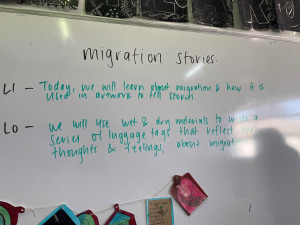 migration stories.
LI - Today, we will learn about migration & how it is
used in artwork to tell stories.
LO - We will use wet & dry materials to
series of luggage tags that reflect
thoughts & feelings, about